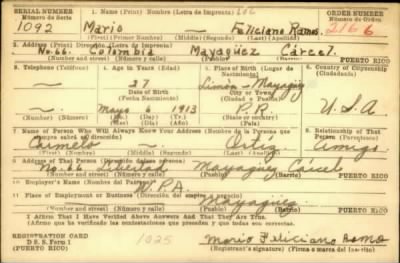 SERIAL NUMBER 1. Name (Print) Nombre (Letra de Imprenta) ORDER NUMBER
Número de Serie Número de Orden
1092 Mario Feliciano Ramos 2166
(First) (Primer Nombre) (Middle) (Segundo) (Last) (Apellido)
2. Address (Print) Dirección (Letra de Imprenta)
No. 66. Colombia Mayagüez Cárcel.
(Number) (Número) (Street) (Calle) (Town) (Pueblo) (Barrio) PUERTO RICO
3. Telephone (Teléfono) 4. Age in Years (Edad) 5. Place of Birth (Lugar de Nacimiento) 6. Country of Citizenship (Ciudadanía)
27 Limón - Mayagüez
Date of Birth City or Town
(Fecha Nacimiento) (Ciudad o Pueblo)
Mayo 6 1913 P.R. U.S.A
State or country
(Mo.) (Día) (Año) (País)
7. Name of Person Who Will Always Know Your Address (Nombre de la Persona que siempre sabrá dirección) 8. Relationship of That Person (Parentesco)
Carmelo Ortiz Amigo
(First) (Nombre) (Middle) (Segundo) (Last) (Apellido)
9. Address of That Person (Dirección)
No. 66 Libertad Mayagüez Cárcel
(Number) (Número) (Street) (Calle) (Town) (Pueblo) (Barrio) PUERTO RICO
10. Employer's Name (Nombre del Patrono)
W.P.A.
11. Place of Employment or Business (Dirección del empleo o negocio)
Mayagüez
(Number) (Número) (Street) (Calle) (Town) (Pueblo) (Barrio) PUERTO RICO
I Affirm That I Have Verified Above Answers And That They Are True.
(Afirmo que he verificado las contestaciones que preceden y que todas son correctas.
REGISTRATION CARD
D S S. Form 1 1025 Mario Feliciano Ramos
(PUERTO RICO) (Registrant's signature) (Firma o marca del inscrito)